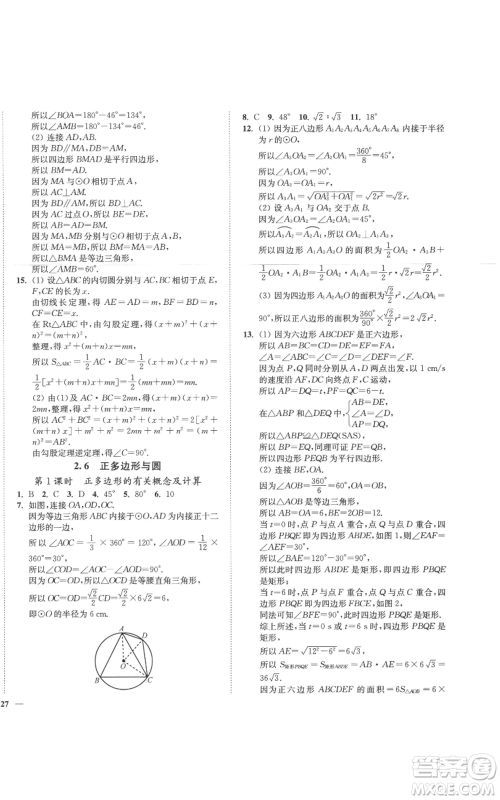 所以∠BOA=180°-46°=134°,
所以∠AMB=180°-134°=46°.
(2) 连接 AD,AB,
因为 BD∥AM,DB=AM,
所以四边形 BMAD 是平行四边形.
所以 BM=AD.
因为 MA 与⊙O 相切于点 A,
所以 AC⊥AM.
因为 BD∥AM,所以 AC⊥BD.
又因为 AC 过圆心 O,所以 BE=DE.
所以 AB=AD=BM.
因为 MA,MB 分别与⊙O 相切,
所以 MA=MB.所以 BM=MA=AB.
所以△MAB 为等边三角形.
所以∠AMB=60°.
15. (1) 设△ABC 的内切圆分别与 AC,BC 相切于点 E,
F,CE 的长为 x.
由切线长定理,得
AE=AD=m,BF=BD=n,CF=CE=x.
在 Rt△ABC 中,由勾股定理,得 (x+m)²+(x+n)²
=(m+n)².
整理,得 x²+(m+n)x=mn.
所以 S△ABC=1/2 AC·BC=1/2(x+m)(x+n)=
1/2[x²+(m+n)x+mn]=1/2(mn+mn)=mn.
(2) 由(1)及 AC·BC=2mn,得 (x+m)(x+n)=
2mn,整理,得 x²+(m+n)x=mn.
所以 AC²+BC²=(x+m)²+(x+n)²=2[x²+(m+
n)x]+m²+n²=2mn+m²+n²=(m+n)²=AB².
由勾股定理的逆定理,得∠C=90°.
2.6 正多边形与圆
第1课时 正多边形的有关概念及计算
1. B 2. C 3. D 4. 45° 5. 80° 6. 10
7. 如图,连接 OA,OD,OC.
因为等边三角形 ABC 内接于⊙O,AD 为内接正十二
边形的一边,
所以∠AOC=1/3×360°=120°,∠AOD=1/12×
360°=30°.
所以∠COD=∠AOC-∠AOD=90°.
因为 OC=OD,所以△OCD 是等腰直角三角形.
所以 OC=OD=√2/2 CD=√2/2×6√2=6,
即⊙O 的半径为 6 cm.
A
D
O
B
C
27
8. C 9. 48° 10. √2:√3 11. 18°
12. (1) 因为正八边形 A₁A₂A₃A₄A₅A₆A₇A₈ 内接于半径
为 r 的⊙O,
所以∠A₁OA₂=∠A₂OA₃=360°/8=45°.
所以∠A₁OA₃=90°.
因为 OA₁=OA₃=r,
所以 A₁A₃=√(OA₁²+OA₃²)=√(2r²)=√2r.
(2) 设 A₁A₃ 与 OA₂ 交于点 C.
因为A₁A₂=A₂A₃,所以 OA₂⊥A₁A₃.
所以四边形 A₁A₂A₃O 的面积为1/2 OA₂·A₁C+
1/2 OA₂·A₃C=1/2 OA₂·A₁A₃=1/2 r·√2r=√2/2 r².
因为∠A₁OA₃=90°,所以正八边形的面积为360°/90°×
√2/2 r²=2√2r².
13. (1) 因为六边形 ABCDEF 是正六边形,
所以 AB=BC=CD=DE=EF=FA,
∠A=∠ABC=∠C=∠D=∠DEF=∠F.
因为点 P,Q同时分别从 A,D 两点出发,以 1 cm/s
的速度沿 AF,DC 向终点 F,C 运动,
所以 AP=DQ=t cm,PF=QC=(6-t)cm.
在△ABP 和△DEQ 中,{AB=DE, ∠A=∠D, AP=DQ,
所以△ABP≌△DEQ(SAS).
所以 BP=EQ.同理可证 PE=QB.
所以四边形 PBQE 是平行四边形.
(2) 连接 BE,OA,
则∠AOB=360°/6=60°.
因为 OA=OB,所以△AOB 是等边三角形.
所以 AB=OA=OB=6 cm,BE=2OB=12 cm.
当 t=0 时,点 P 与点 A 重合,点 Q 与点 D 重合,
此时四边形 PBQE 即四边形 ABDE,如图①,则∠EAF
=∠AEF=30°.
所以∠BAE=120°-30°=90°.此时四边形 PBQE
是矩形;
当 t=6 时,点 P 与点 F 重合,点 Q 与点 C 重合,此时
四边形 PBQE 即四边形 FBCE,如图②,
同理可知此时四边形 PBQE 是矩形.
综上所述,当 t=0 或 6 时,四边形 PBQE 是矩形.
所以 AE=√(12²-6²)=6√3(cm).
所以 S矩形PBQE=AB·AE=6×6√3=36√3(cm²).
因为正六边形 ABCDEF 的面积=6S△AOB=6×